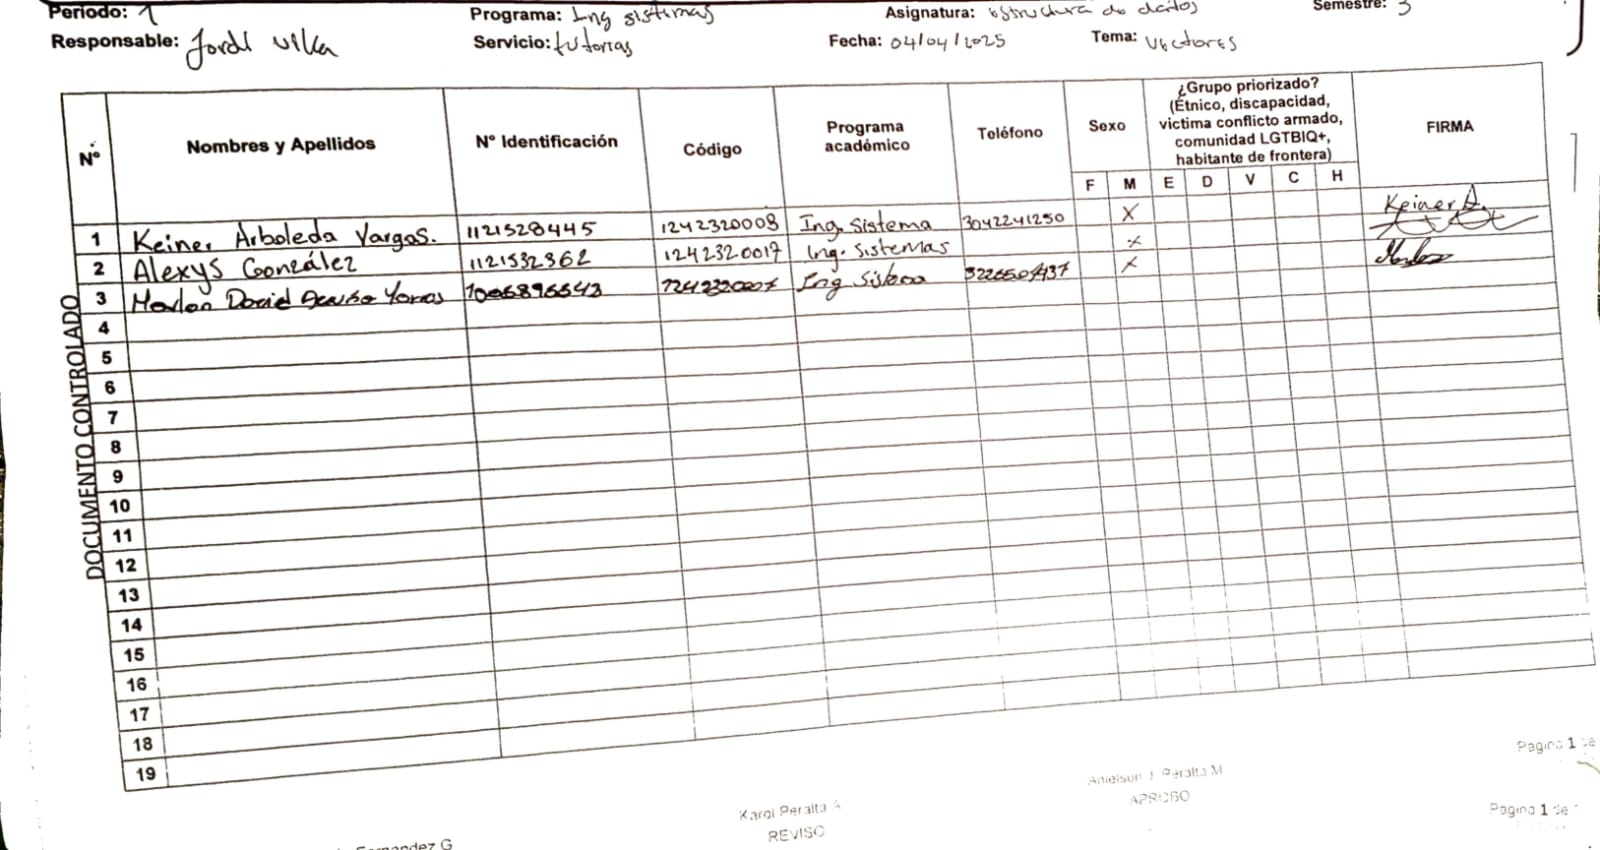 Periodo: 1 Programa: Ing sistemas Asignatura: estructura de datos Semestre: 3
Responsable: Jordi Servicio: tutorias Fecha: 04/04/2025 Tema: Vectores
N° Nombres y Apellidos N° Identificación Código Programa académico Teléfono Sexo ¿Grupo priorizado? (Étnico, discapacidad, victima conflicto armado, comunidad LGTBIQ+, habitante de frontera) FIRMA
F M E D V C H
1 Keiner Arboleda Vargas. 1121528445 1242320008 Ing. Sistema 3042241250 X Keiner A.
2 Alexys González 1121532362 1242320017 Ing. Sistemas X
3 David 1006896643 Ing Sistema X
4
5
6
7
8
9
10
11
12
13
14
15
16
17
18
19
DOCUMENTO CONTROLADO
Pagina 1 de
Karol Peralta A
REVISO
Peralta M
APROBO
Pagina 1 de
Fernandez G